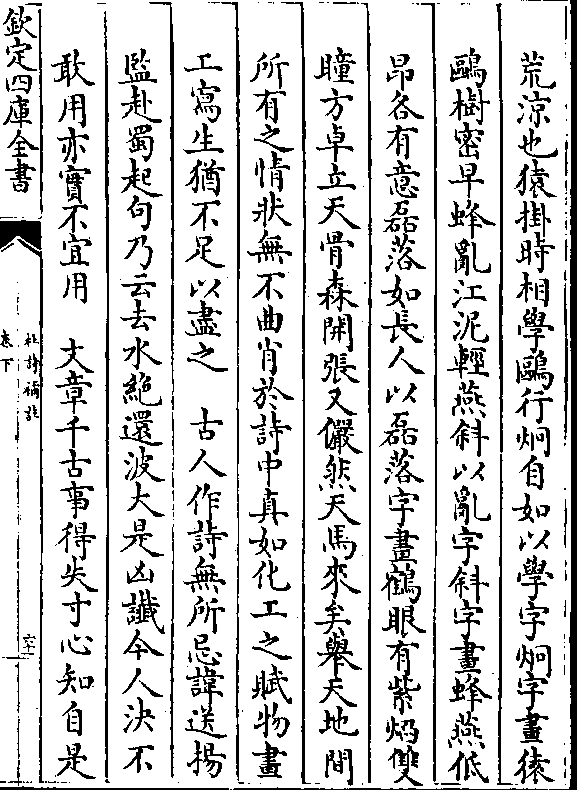 荒涼也猿掛時相學鷗行炯自如以學字炯字畫猿
鷗樹密早蜂亂江泥輕燕斜以亂字斜字畫蜂燕低
昂各有意磊落如長人以磊落字畫鶴眼有紫焰雙
瞳方卓立天骨森開張又儼然天馬來矣舉天地間
所有之情狀無不曲肖於詩中真如化工之賦物畫
工寫生猶不足以盡之　古人作詩無所忌諱送揚
監赴蜀起句乃云去水絶還波大是凶讖今人決不
敢用亦實不宜用　文章千古事得失寸心知自是
欽定四庫全書
杜詩攟
卷下
六十